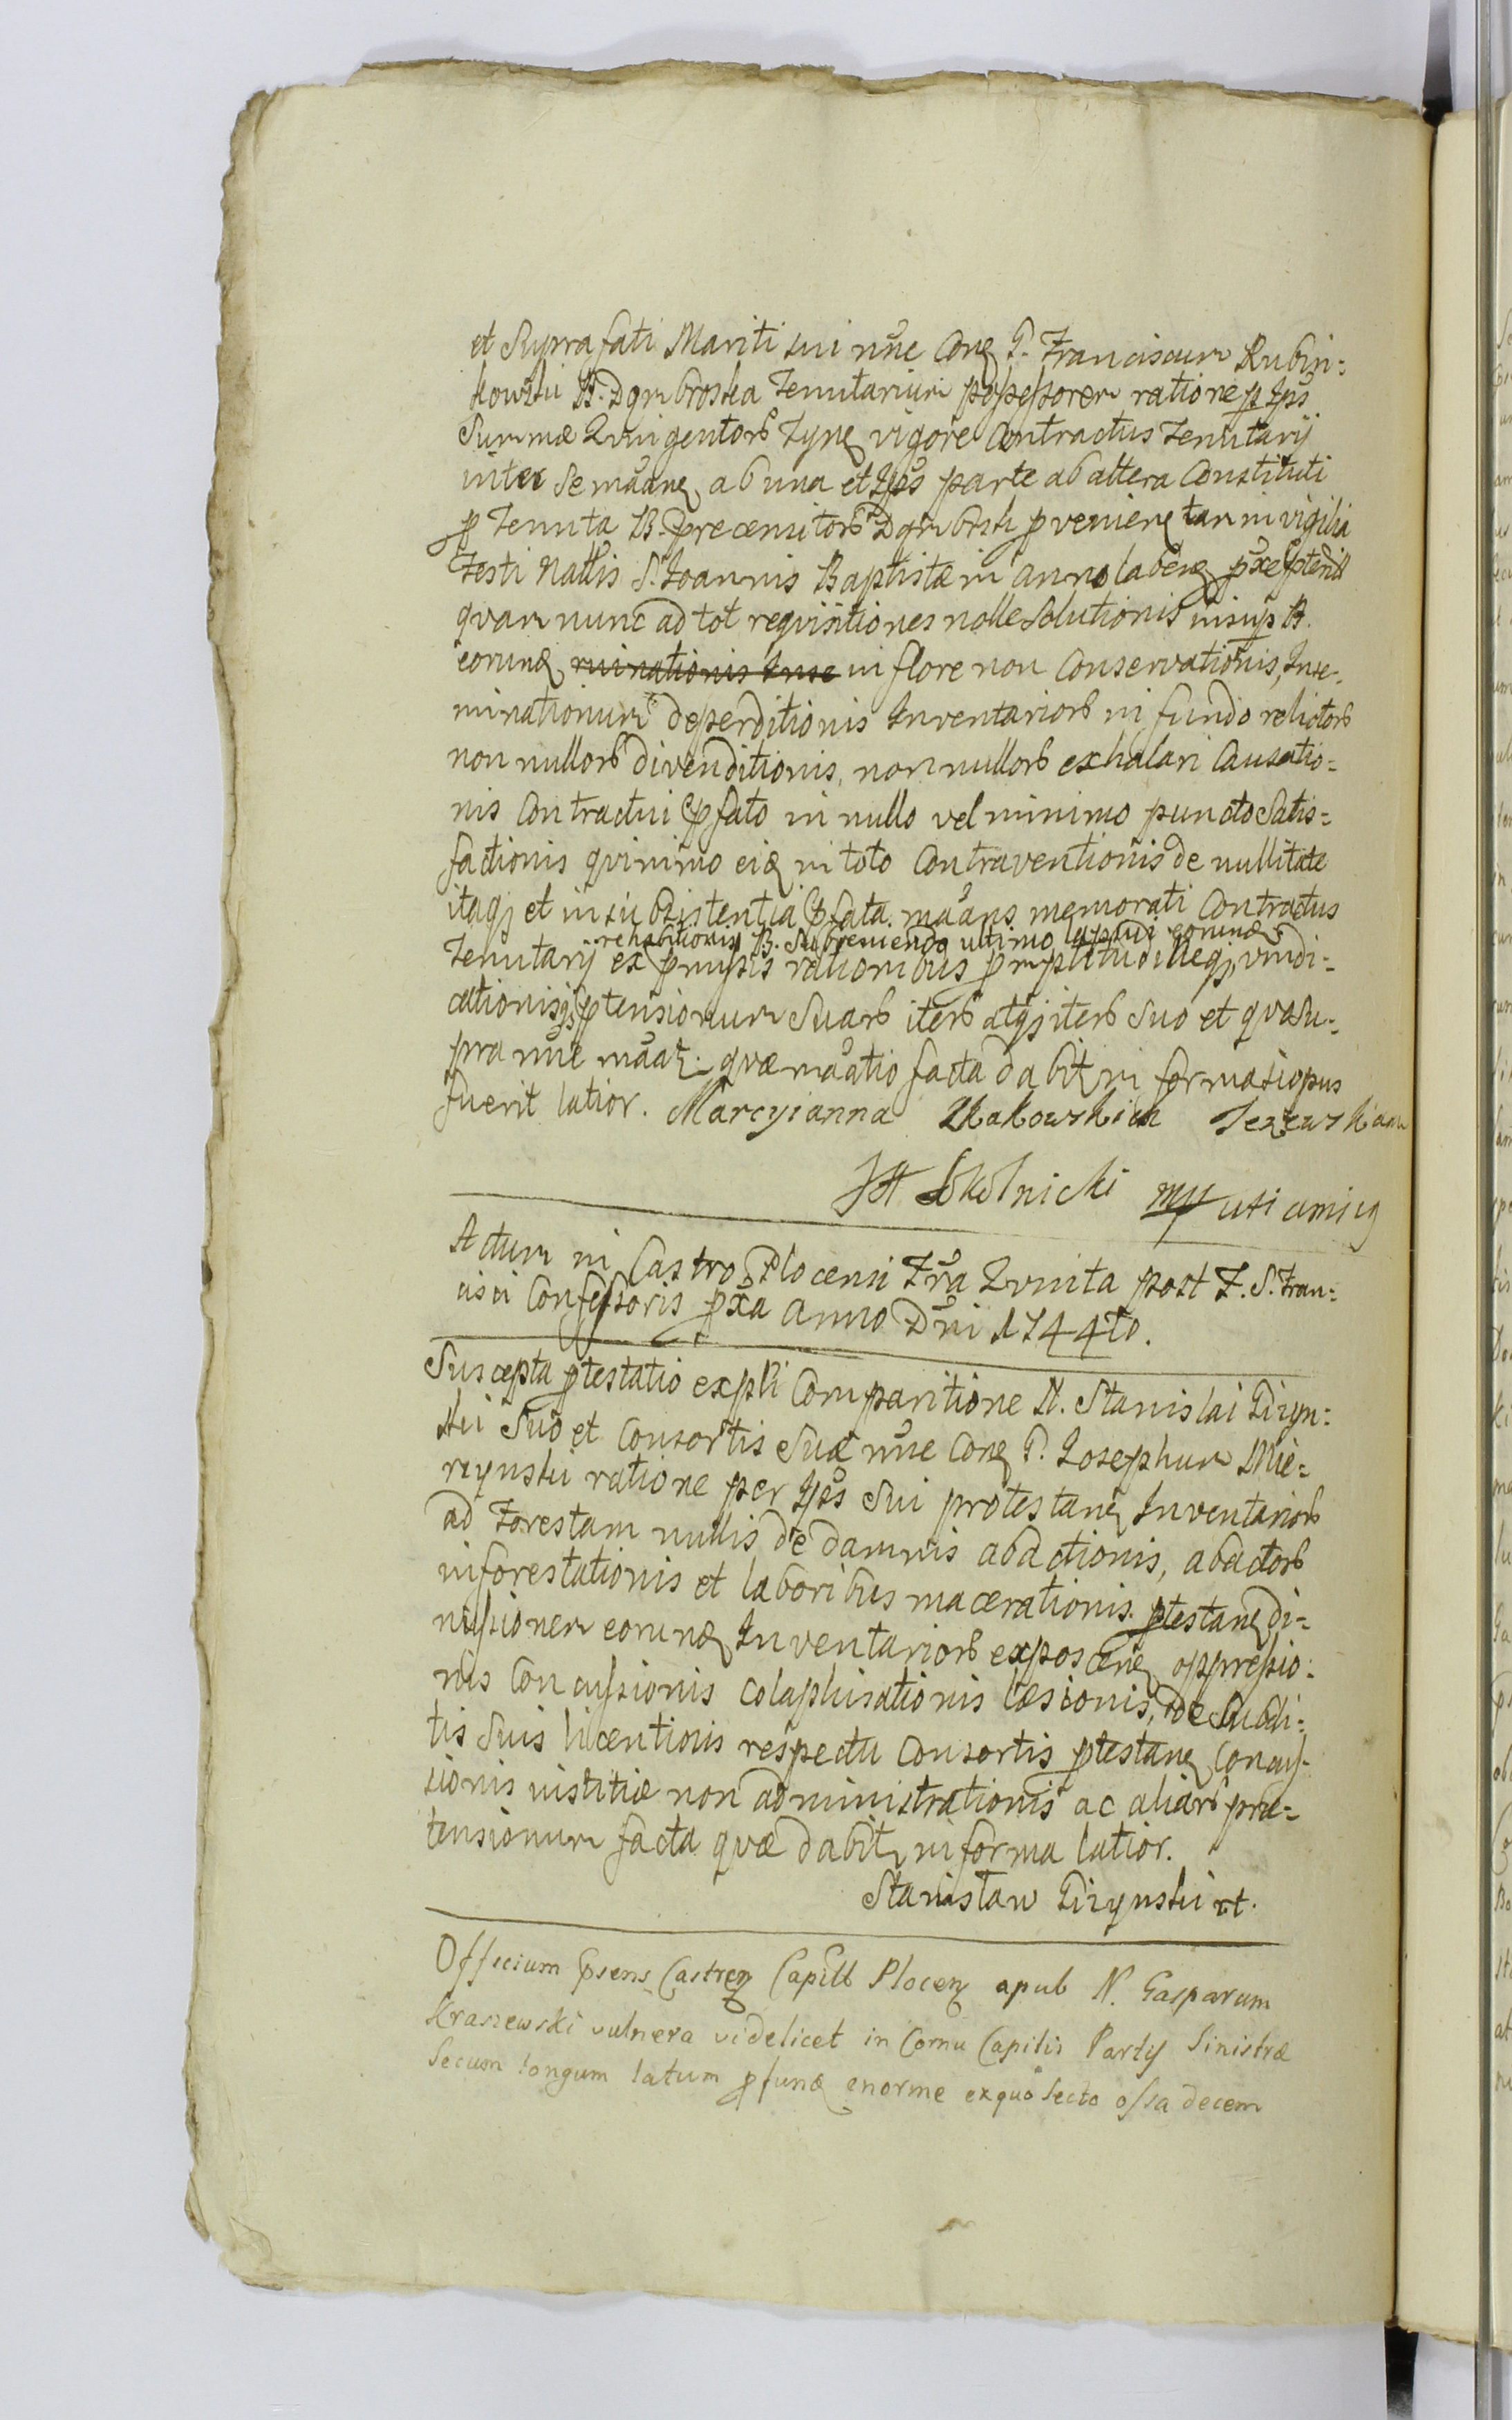 et Supra fati Mariti sui nõe Conꝗ G. Franciscum Rubin=
kowski B. Dąmbroska Tenutarium possessorem ratione p Ipõs
Summæ Quingentorb Tynꝗ vigore Contractus Tenutarij
inter se mãanꝗ ab una et Ipõs parte ab altera Constituti
p Tenuta B. præcensitorb Dąmbrsk pvenienꝗ tam in vigilia
Festi Natlis S. Joannis Baptistæ in anno labenꝗ pxe
qvam nunc ad tot reqvisitiones nolle Solutionis insup B.
eorunꝗ ruinationis Inse in flore non Conservationis, Inse-
minationum deperditionis Inventariorb in fundo relictorb
non nullorb divenditionis, non nullorb exhalari Causatio=
nis Contractui pfato in nullo vel minimo puncto Satis=
factionis qvinimo eiꝗ in toto Contraventionis de nullitate
itaqꝫ et insubsistentia pfata mãans memorati Contractus
rehabitionis B. Subveniendo ultimo eorunꝗ
Tenutarij ex pmissis rationibus vindi=
cationisqꝫ ptensionum Suarb iterb atqꝫ iterb Suo et qvo Su-
pra nõe mãat. qvæ mãatio facta dabit in forma si opus
fuerit latior. Marcyianna Zkakowskich
JSt Sokolnicki mp uti amicꝗ
Actum in Castro Plocensi Fra Qvinta post F. S. Fran=
cisci Confessoris pxa Anno Dni 1744to.
Suscepta ptestatio expli Comparitione N. Stanislai Giżyn=
ski Suo et Consortis Suæ nõe Conꝗ G. Josephum Mie=
rzynski ratione per Ipõs Sui protestanꝗ Inventariorb
ad Forestam nullis de damnis abactionis, abactorb
inforestationis et laboribus macerationis ptestanꝗ di=
missionem eorunꝗ Inventariorb exposcenꝗ oppressio=
nis Concussionis colaphisationis læsionis, de Subdi=
tis Suis licentionis respectu Consortis ptestanꝗ Concus-
sionis iustitiæ non administrationis ac aliarb præ-
tensionum facta qvæ dabit in forma latior.
Stanisław Giżynski rt.
Officium Psens Castren Capitl Plocen apud N. Gasparum
Kraszewski vulnera videlicet in Cornu Capitis Partis Sinistræ
Secum longum latum pfunꝗ enorme ex quo Secto ossa decem